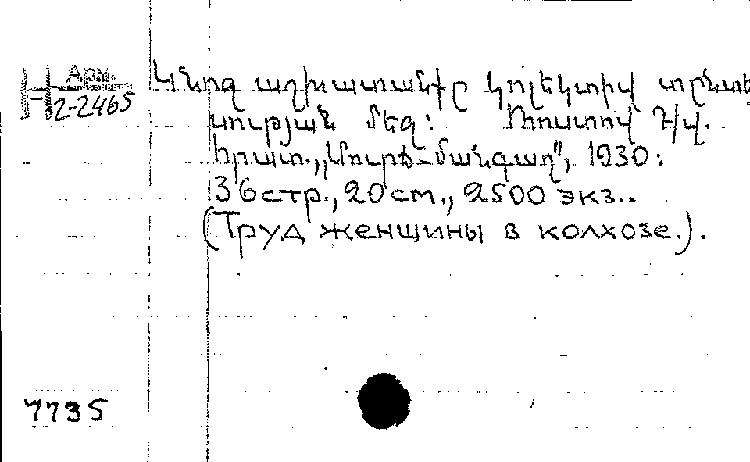 Арм.
Н 2-2465
Կնոջ աշխատանքը կոլեկտիվ տընտե
սության մեջ: Ռոստով Դ/վ.
հրատ. „Մուրճ-մանգաղ", 1930:
36 стр., 20 см., 2500 экз..
(Труд женщины в колхозе.).
7735